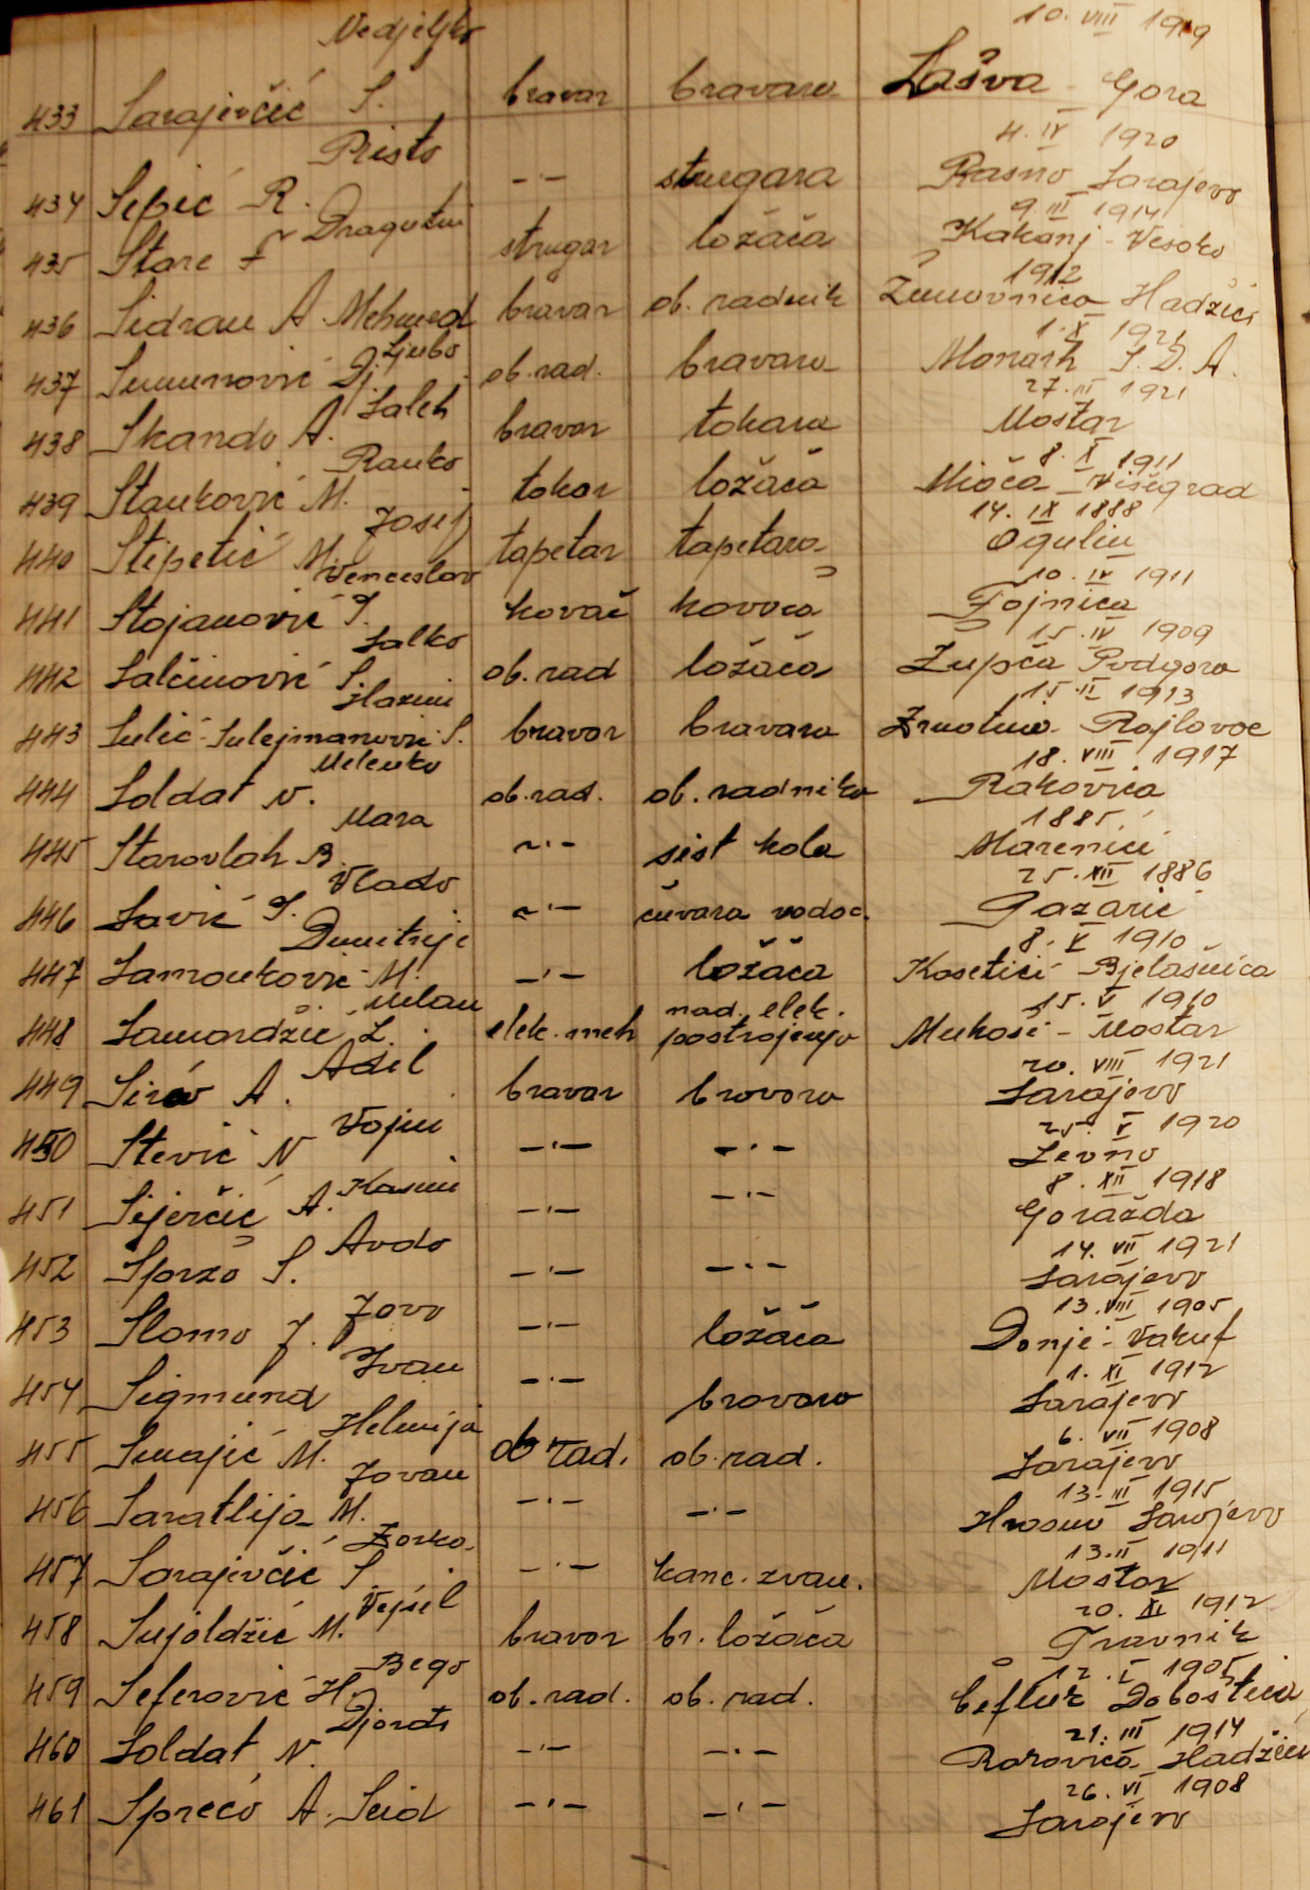 Nedjeljko 10. VIII 1919
433 Sarajevčić S. bravar bravara Lašva - Gora
Risto 4. IV 1920
434 Sepić R. -"- strugara Rasno Sarajevo
Dragutin 9. III 1914
435 Stare F strugar ložača Kakanj - Visoko
1912
436 Sidran A. Mehmed bravar ob. radnik Žunovnica Hadžići
Ljubo 1. X 1921
437 Simunović Dj. ob. rad. bravara Monarh S. D. A.
Saleh 27. III 1921
438 Skando A. bravar tokara Mostar
Ranko 8. X 1911
439 Stanković M. tokar ložača Mioča - Višegrad
Josip 14. IX 1888
440 Stipetić M. tapetar tapetara Ogulin
Venceslav 10. IV 1911
441 Stojanović S. kovač kovača Fojnica
Salko 15. IV 1909
442 Salčinović S. ob. rad ložača Župča Podgora
Hazim 15. II 1913
443 Sulić - Sulejmanović S. bravar bravara Rajlovac
Milenko 18. VIII 1917
444 Soldat N. ob. rad. ob. radnika Rakovica
Mara 1885.
445 Starovlah B. -"- čist kola Marenići
Vlado 25. XII 1886
446 Savić S. -"- čuvara vodoc. Pazarić
Dimitrije 8. V 1910
447 Samouković M. -"- ložača Kosetići - Bjelašnica
Milan nad. elek. 15. V 1910
448 Samardžić L. elek. meh postrojenja Mukoše - Mostar
Adil 20. VIII 1921
449 Sirćo A. bravar bravara Sarajevo
Vojin 25. V 1920
450 Stević N -"- -"- Livno
Kasim 8. XII 1918
451 Sijerčić A. -"- -"- Goražda
Avdo 14. VII 1921
452 Sprzo S. -"- -"- Sarajevo
Jovo 13. VIII 1905
453 Slomo J. -"- ložača Donji - Vakuf
Ivan 1. XI 1912
454 Sigmund -"- bravara Sarajevo
Helmija 6. VII 1908
455 Smajić M. ob rad. ob. rad. Sarajevo
Jovan 13. III 1915
456 Saratlija M. -"- -"- Hrasno Sarajevo
Zorka 13. II 1911
457 Sarajevčić S -"- kanc. zvan. Mostar
Vejsil 20. XI 1912
458 Suljoldžić M. bravar br. ložača Travnik
Bego 12. I 1905
459 Seferović H. ob. rad. ob. rad. Čifluk Doboštica
Djordo 21. III 1914
460 Soldat N. -"- -"- Rakovica Hadžići
26. VI 1908
461 Sprečo A. Seid -"- -"- Sarajevo